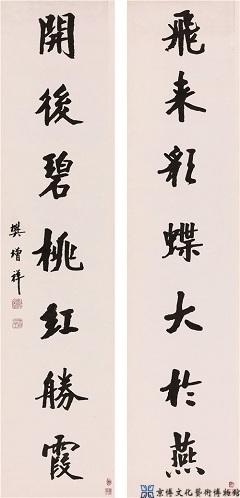 飛来彩蝶大於燕
開後碧桃紅勝霞
樊增祥
京博文化藝術博物館